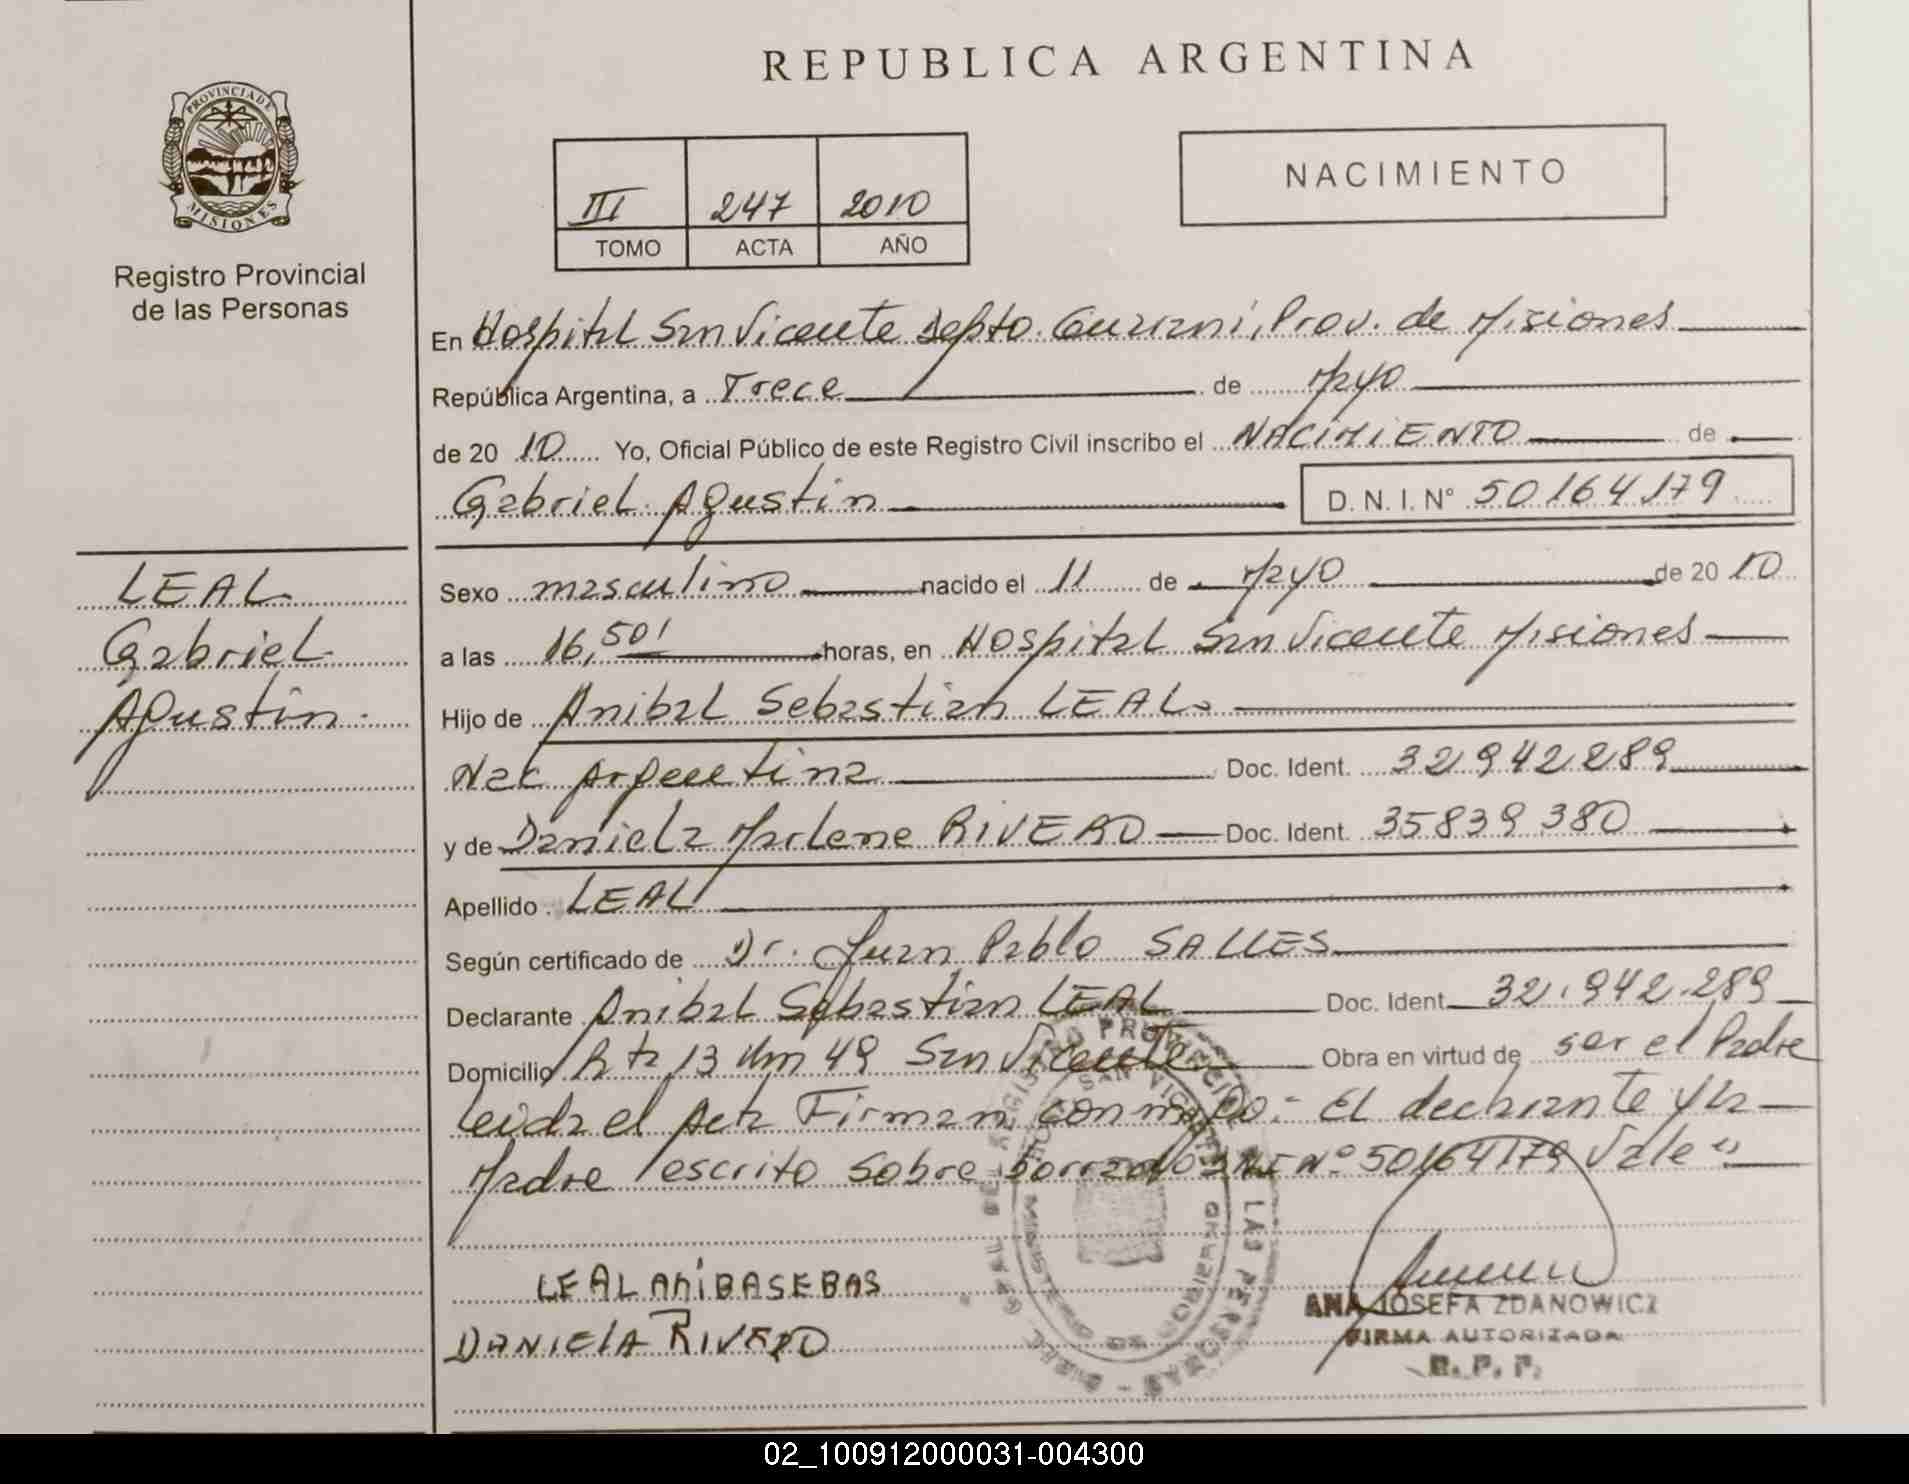 REPUBLICA ARGENTINA
PROVINCIA DE
MISIONES
Registro Provincial
de las Personas
III 247 2010
TOMO ACTA AÑO
NACIMIENTO
En Hospital San Vicente Depto. Guarani, Prov. de Misiones
República Argentina, a Trece de Mayo
de 20 10 Yo, Oficial Público de este Registro Civil inscribo el NACIMIENTO de
Gabriel Agustin D. N. I. N° 50164179
LEAL
Gabriel
Agustin.
Sexo masculino nacido el 11 de Mayo de 20 10
a las 16,50' horas, en Hospital San Vicente Misiones
Hijo de Anibal Sebastian LEAL
Nac Argentina Doc. Ident. 32942289
y de Daniela Marlene RIVERO Doc. Ident. 35839380
Apellido LEAL
Según certificado de Dr. Juan Pablo SALLES
Declarante Anibal Sebastian LEAL Doc. Ident. 32.942.289
Domicilio Rta 13 Km 49 San Vicente Obra en virtud de ser el Padre
Leida el Acta Firman conmigo:- El declarante y la
Madre /escrito sobre borrado DNI N° 50164179 Vale"
LEAL ANIBASEBAS
DANIELA RIVERO
ANA JOSEFA ZDANOWICZ
FIRMA AUTORIZADA
R. P. P.
02_100912000031-004300